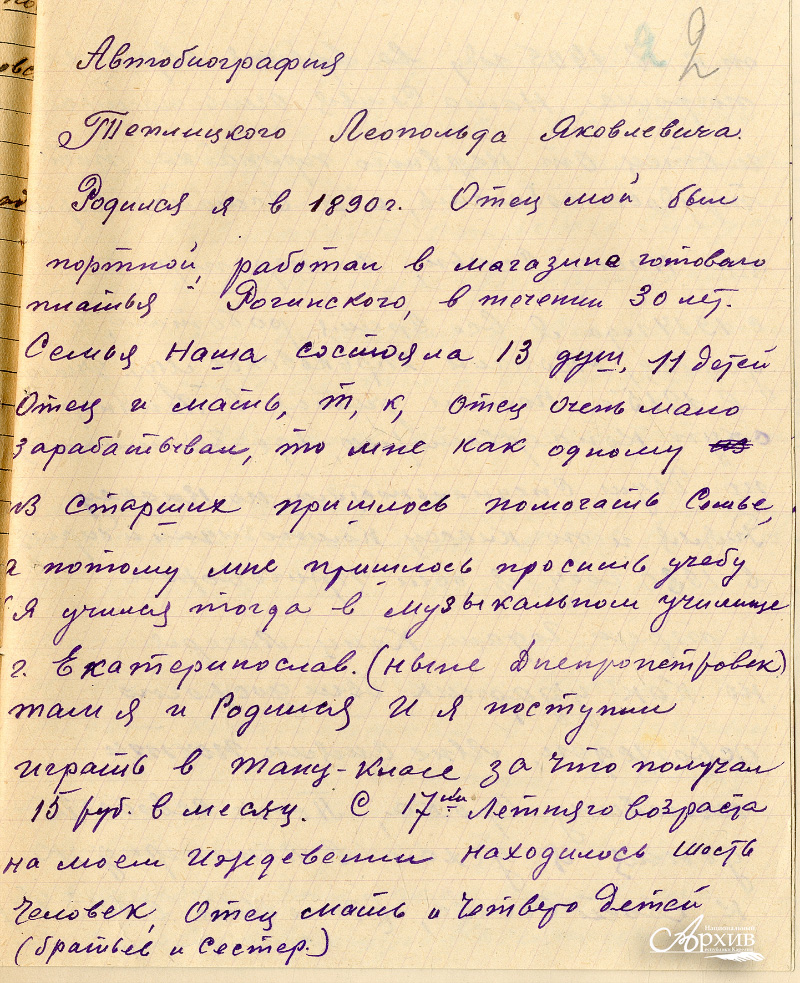 2
Автобиография
Теплицкого Леопольда Яковлевича.
Родился я в 1890г. Отец мой был
портной, работал в магазине готового
платья Рогинского, в течении 30 лет.
Семья наша состояла 13 душ, 11 детей
Отец и мать, т, к, отец очень мало
зарабатывал, то мне как одному из
из старших пришлось помогать Семье,
а потому мне пришлось просить учебу
(я учился тогда в музыкальном училище
г. Екатеринослав. (ныне Днепропетровск)
там я и Родился И я поступил
играть в танц-классе за что получал
15 руб. в месяц. С 17ти Летняго возраста
на моем Иждевении находилось шесть
человек, Отец мать и четверо детей
(братьев и сестер.)
Национальный
Архив
республики Карелия